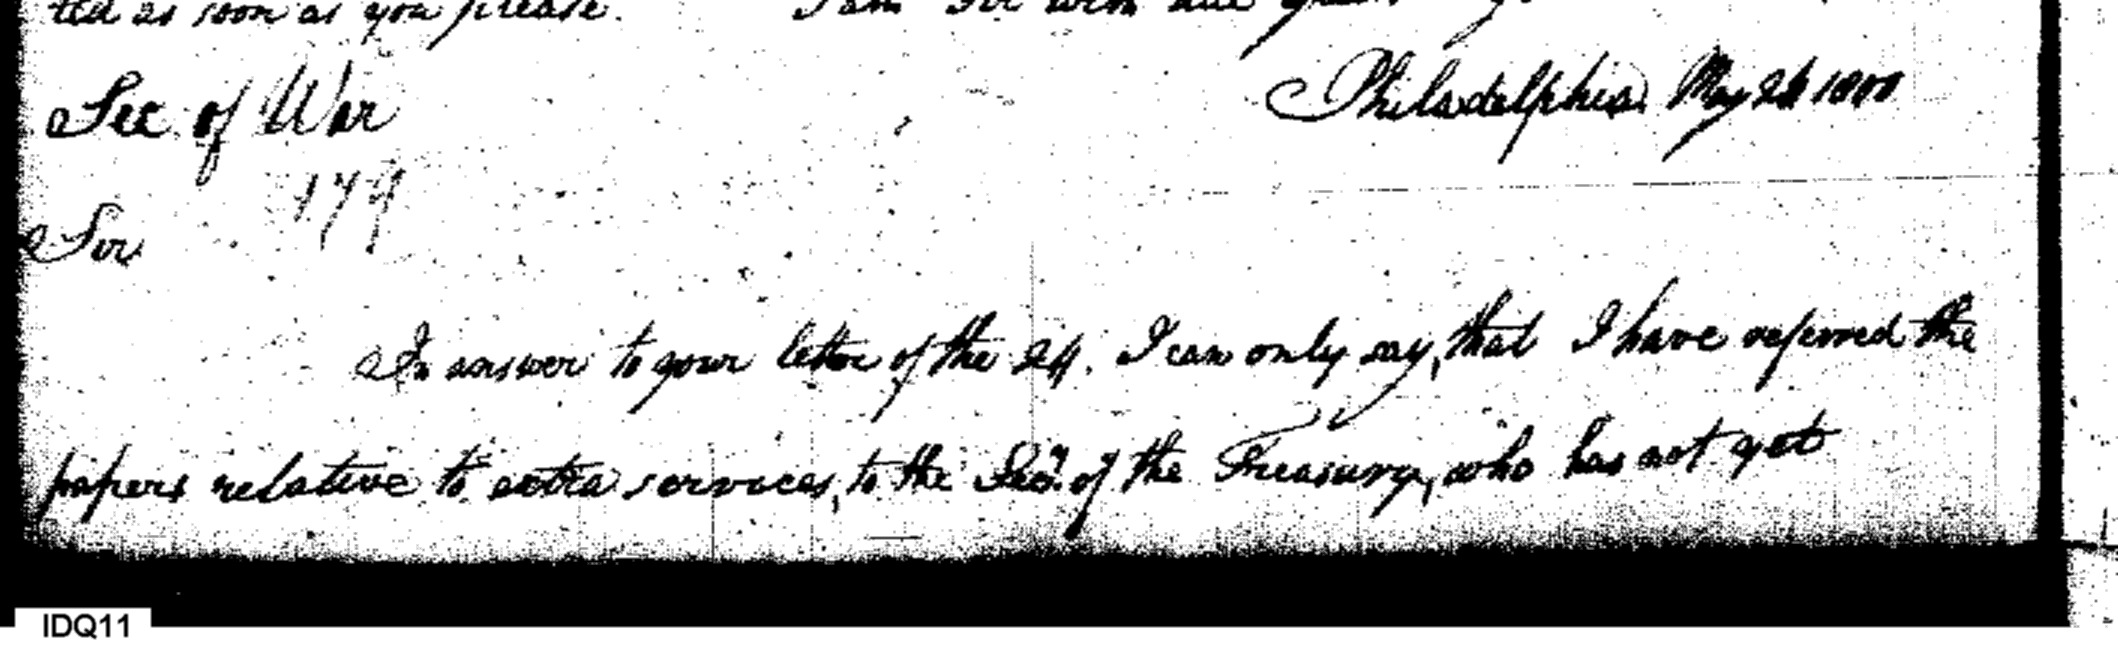 ted as soon as you please. I am Sir with due
Sec of War Philadelphia May 26 1800
179
Sir
In answer to your letter of the 24. I can only say, that I have referred the
papers relative to extra services, to the Secy. of the Treasury, who has not yet
IDQ11